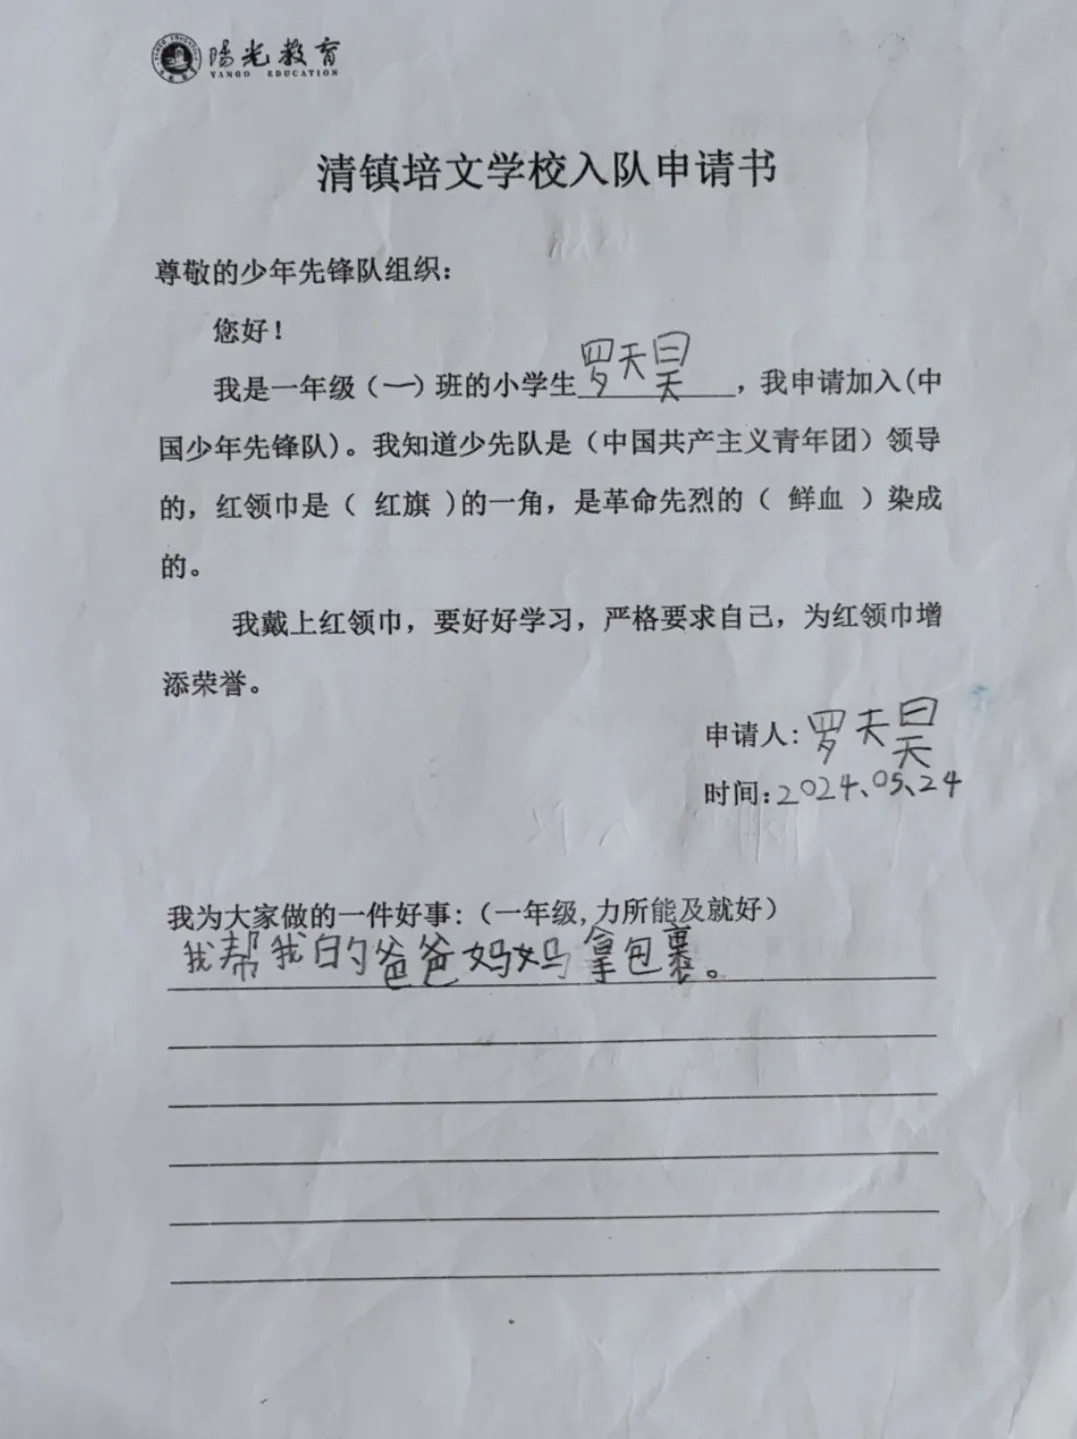 陽光教育
YANGO EDUCATION
清镇培文学校入队申请书
尊敬的少年先锋队组织：
您好！
我是一年级（一）班的小学生罗天昊，我申请加入(中
国少年先锋队)。我知道少先队是（中国共产主义青年团）领导
的，红领巾是（ 红旗 )的一角，是革命先烈的（ 鲜血 ）染成
的。
我戴上红领巾，要好好学习，严格要求自己，为红领巾增
添荣誉。
申请人：罗天昊
时间：2024、05、24
我为大家做的一件好事：（一年级，力所能及就好）
我帮我的爸爸妈妈拿包裹。